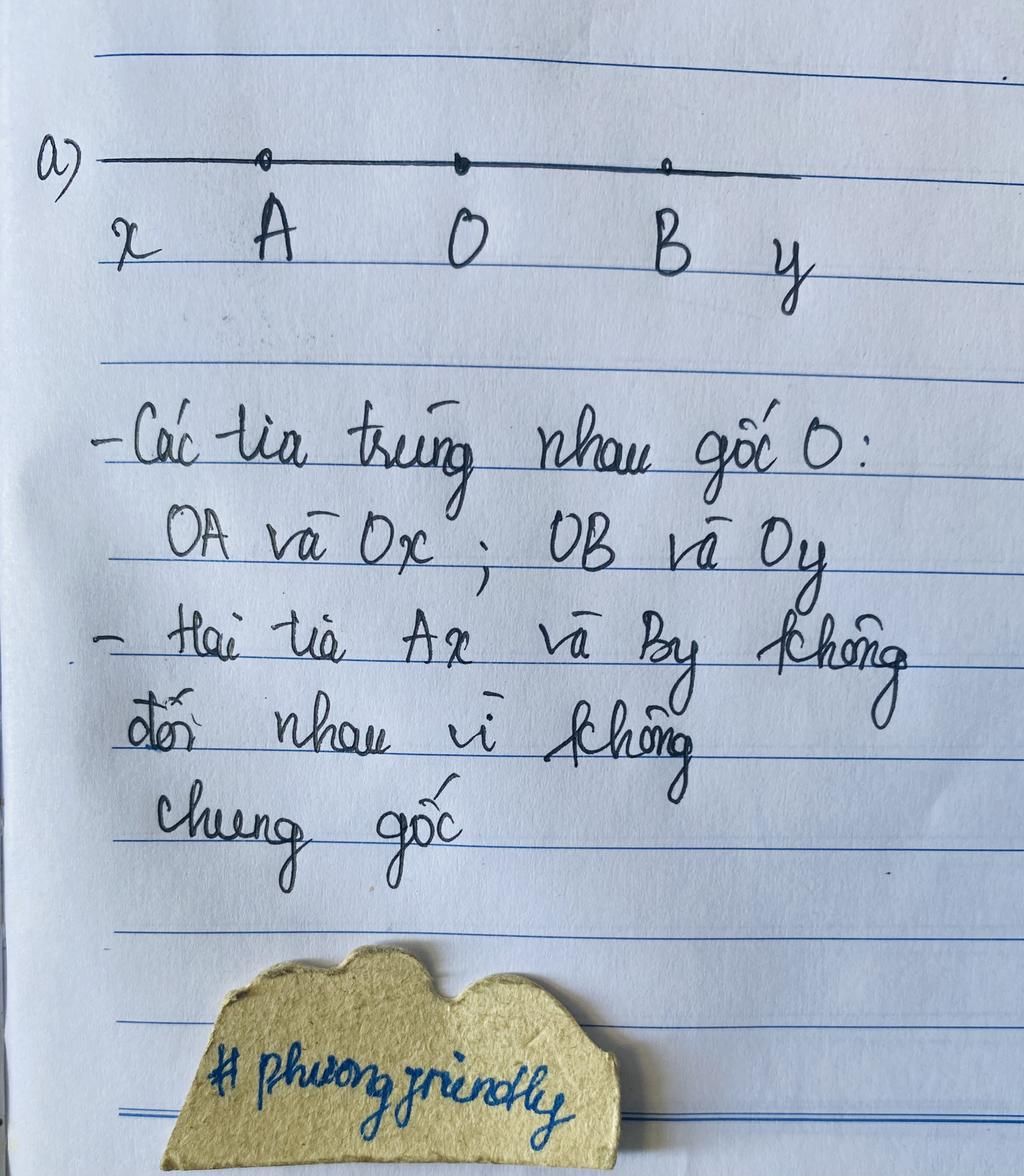 a)
x A O B y
- Các tia trùng nhau gốc O:
OA và Ox ; OB và Oy
- Hai tia Ax và By không
đối nhau vì không
chung gốc
# phuongfriendly